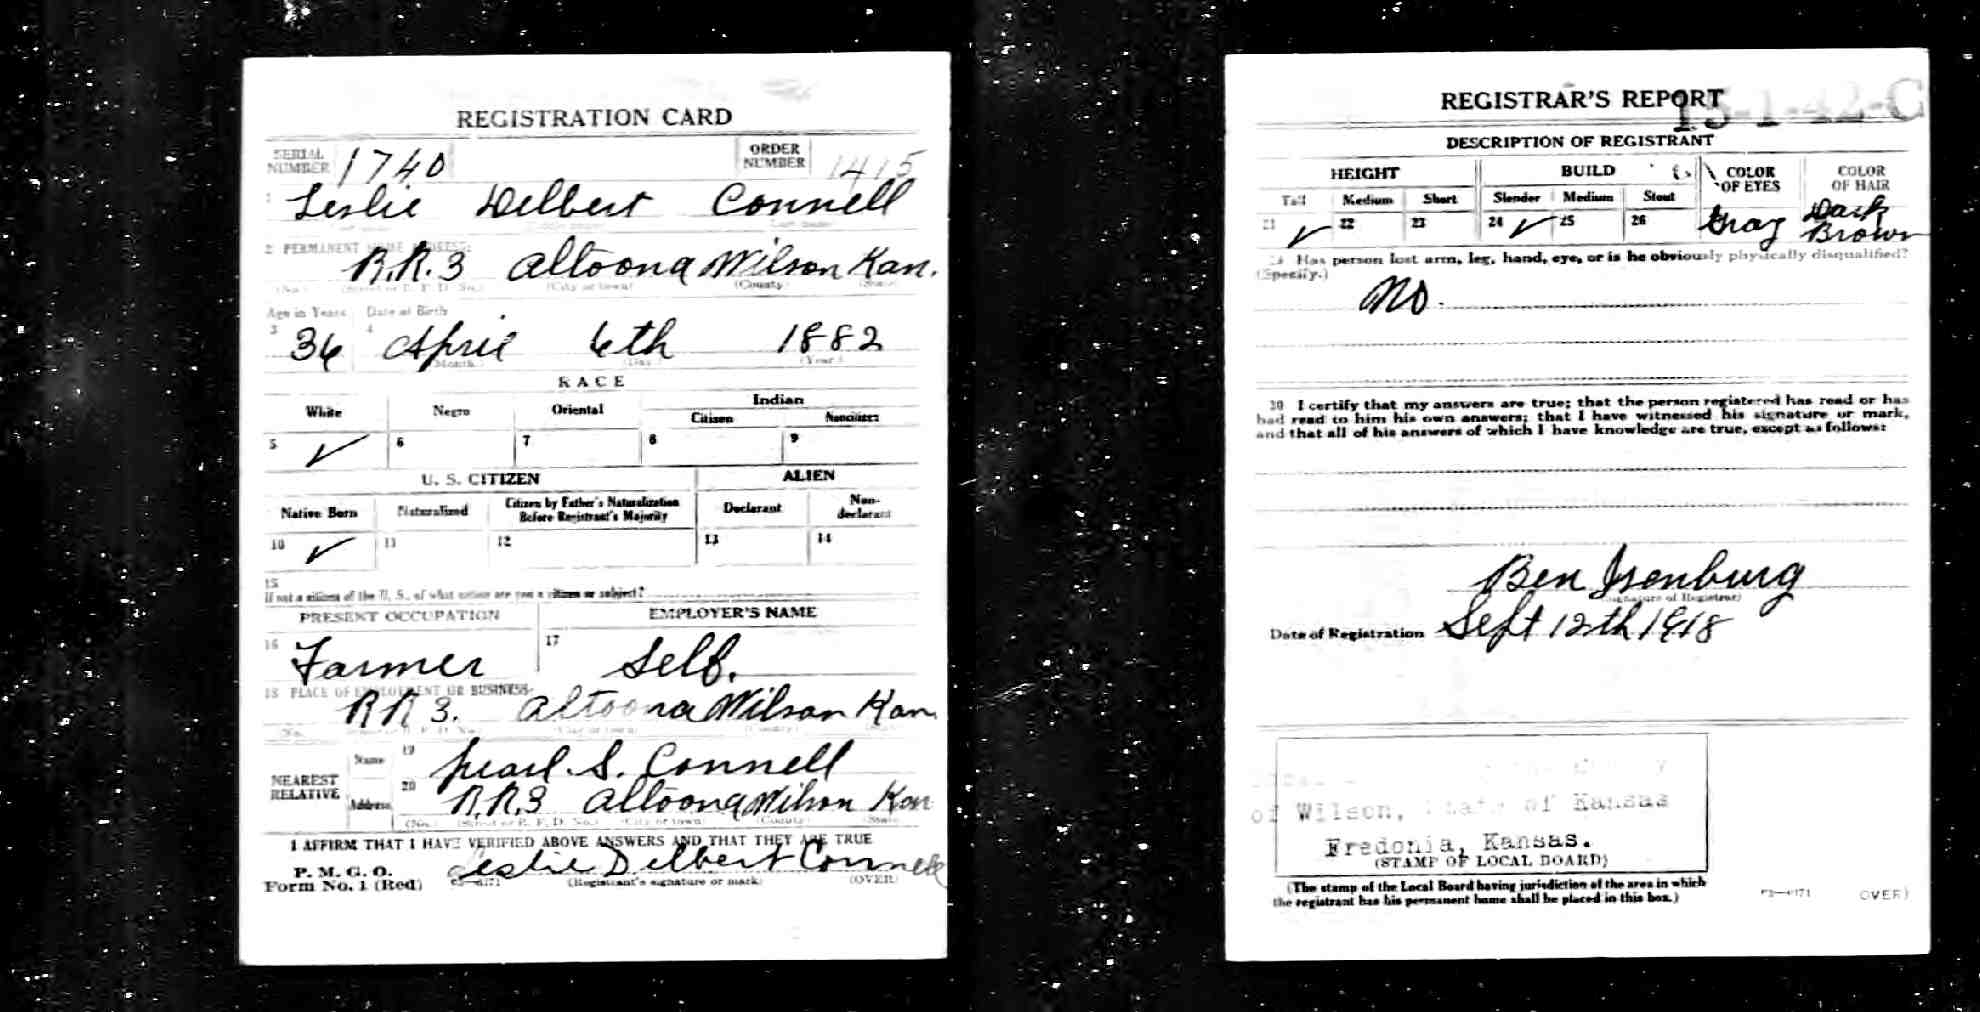 REGISTRATION CARD
SERIAL NUMBER 1740 ORDER NUMBER 1415
1 Leslie Delbert Connell
2 PERMANENT HOME ADDRESS:
R.R.3 Altoona Wilson Kan.
(No.) (Street or R. F. D. No.) (City or town) (County) (State)
Age in Years Date of Birth
3 36 4 April 6th 1882
(Month.) (Day.) (Year.)
RACE
White Negro Oriental Indian
Citizen Noncitizen
5 ✓ 6 7 8 9
U. S. CITIZEN ALIEN
Native Born Naturalized Citizen by Father's Naturalization Before Registrant's Majority Declarant Non-declarant
10 ✓ 11 12 13 14
15
If not a citizen of the U. S., of what nation are you a citizen or subject?
PRESENT OCCUPATION EMPLOYER'S NAME
16 Farmer 17 Self.
18 PLACE OF EMPLOYMENT OR BUSINESS:
RR 3. Altoona Wilson Kan
(No.) (Street or R. F. D. No.) (City or town) (County) (State)
NEAREST RELATIVE Name 19 Pearl. S. Connell
Address 20 R.R.3 Altoona Wilson Kan
(No.) (Street or R. F. D. No.) (City or town) (County) (State)
I AFFIRM THAT I HAVE VERIFIED ABOVE ANSWERS AND THAT THEY ARE TRUE
P. M. G. O.
Form No. 1 (Red) Leslie Delbert Connell
(Registrant's signature or mark) (OVER)
REGISTRAR'S REPORT
15-1-42-C
DESCRIPTION OF REGISTRANT
HEIGHT BUILD COLOR OF EYES COLOR OF HAIR
Tall Medium Short Slender Medium Stout
21 ✓ 22 23 24 ✓ 25 26 Gray Dark Brown
29 Has person lost arm, leg, hand, eye, or is he obviously physically disqualified?
(Specify.)
No.
30 I certify that my answers are true; that the person registered has read or has
had read to him his own answers; that I have witnessed his signature or mark,
and that all of his answers of which I have knowledge are true, except as follows:
Ben Isenburg
(Signature of Registrar)
Date of Registration Sept 12th 1918
of Wilson, State of Kansas
Fredonia, Kansas.
(STAMP OF LOCAL BOARD)
(The stamp of the Local Board having jurisdiction of the area in which
the registrant has his permanent home shall be placed in this box.)
(OVER)